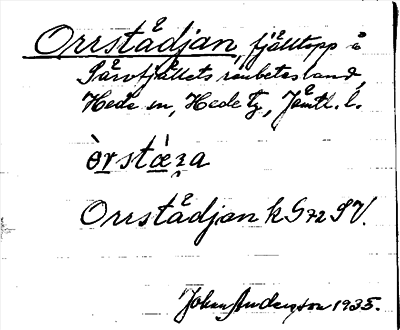 Orrstådjan, fjälltopp å
Särvfjällets renbetesland,
Hede sn, Hede tg, Jämtl. l.
òrstæ̀ra
Orrstådjan k G 72 SV.
Johan Anderzson 1935.